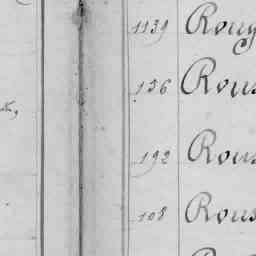 1139 Roug
156 Rous
192 Rous
108 Rous